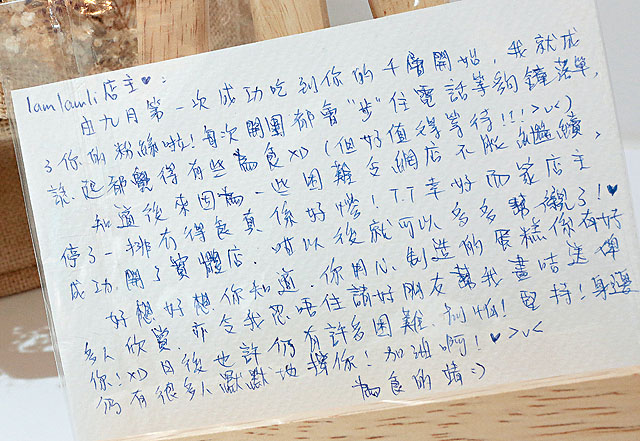 Iamlamli店主♥:
由九月第一次成功吃到你的千層開始,我就成
了你的粉絲啦!每次開團都會"步"住電話等夠鐘落單,
諗起都覺得有些為食XD(但好值得等待!!!>v<)
知道後來因為一些困難令網店不能繼續,
停了一排冇得食真係好慘!T.T幸好而家店主
成功開了實體店.咁以後就可以多多幫襯了!♥
好想好想你知道.你用心制造的蛋糕係有好
多人欣賞.亦令我忍唔住請好朋友幫我畫咭送俾
你!XD日後也許仍有許多困難.別怕!堅持!身邊
仍有很多人默默地撐你!加油啊!♥>v<
為食的靖:)